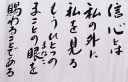 信心とは
私の外に
私を見る
もうひとつの
まことの眼を
賜わることである